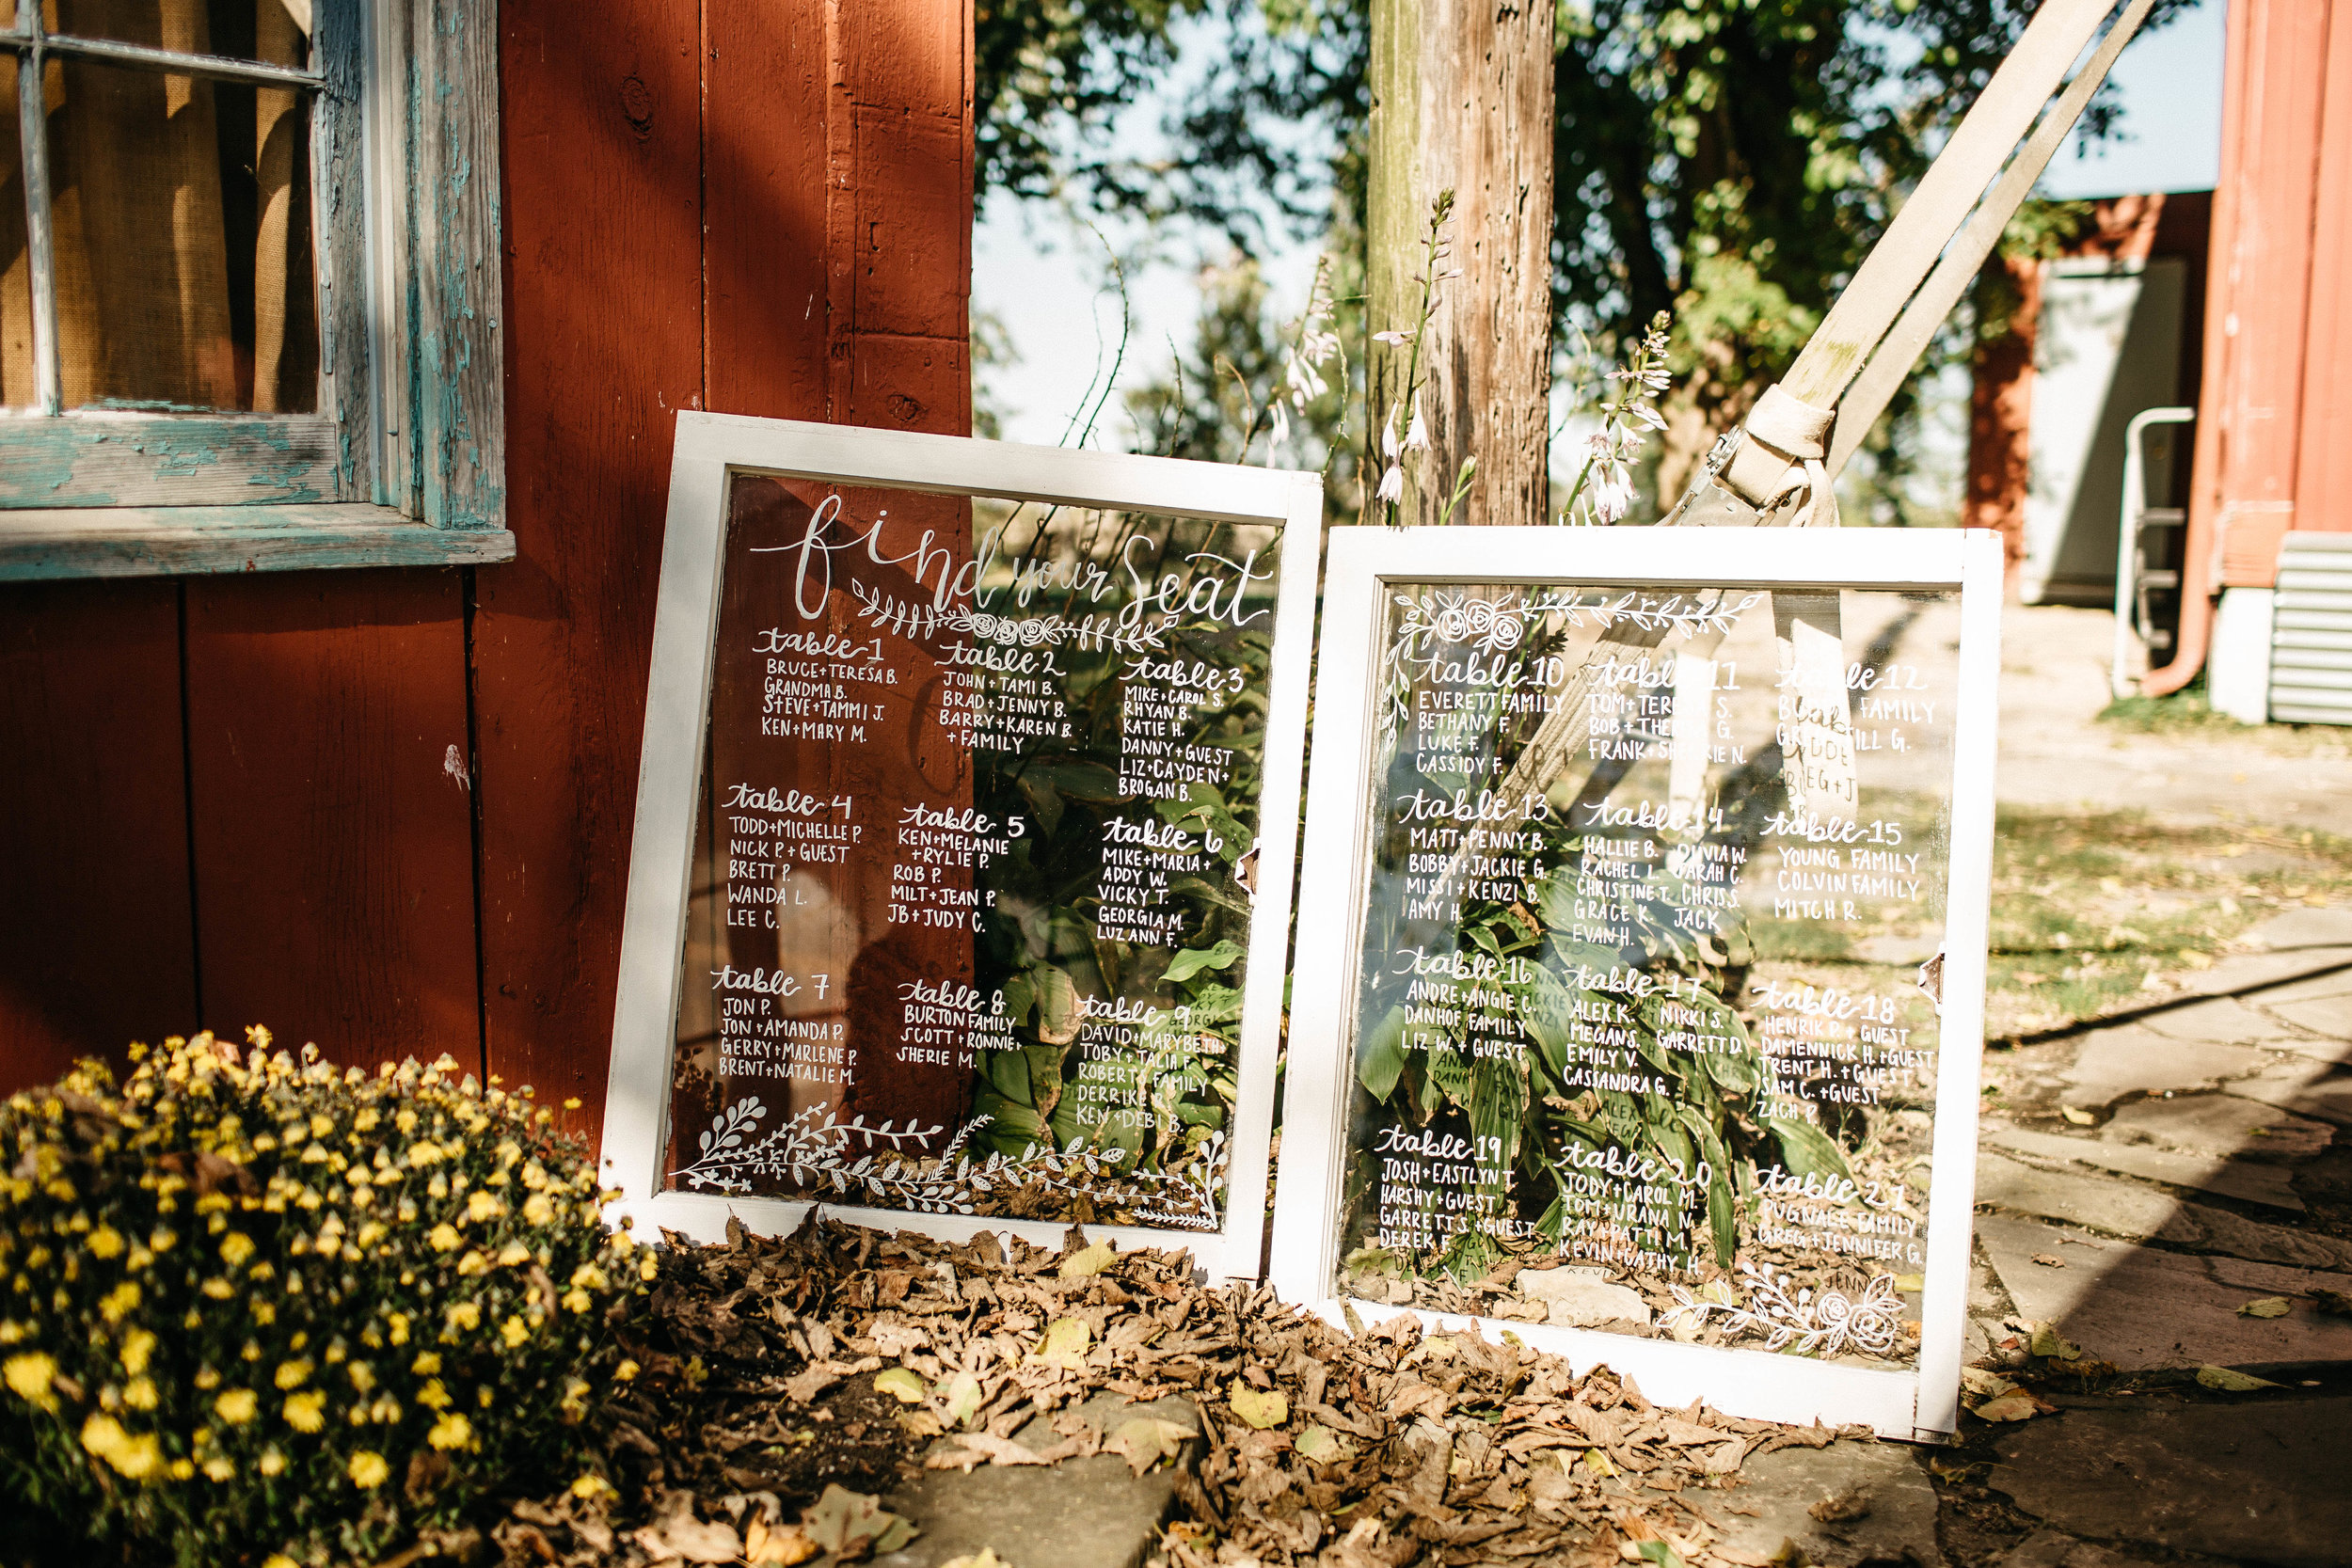 find your Seat
table 1
BRUCE+TERESA B.
GRANDMA B.
STEVE+TAMMI J.
KEN+MARY M.
table 2
JOHN+TAMI B.
BRAD+JENNY B.
BARRY+KAREN B.
+ FAMILY
table 3
MIKE+CAROL S.
RHYAN B.
KATIE H.
DANNY+GUEST
LIZ+CAYDEN+
BROGAN B.
table 4
TODD+MICHELLE P.
NICK P.+GUEST
BRETT P.
WANDA L.
LEE C.
table 5
KEN+MELANIE
+RYLIE P.
ROB P.
MILT+JEAN P.
JB+JUDY C.
table 6
MIKE+MARIA+
ADDY W.
VICKY T.
GEORGIA M.
LUZ ANN F.
table 7
JON P.
JON+AMANDA P.
GERRY+MARLENE P.
BRENT+NATALIE M.
table 8
BURTON FAMILY
SCOTT+RONNIE+
SHERIE M.
table 9
DAVID+MARYBETH+
TOBY+TALIA F.
ROBERTS FAMILY
DERRIKE P.
KEN+DEBI B.
table 10
EVERETT FAMILY
BETHANY F.
LUKE F.
CASSIDY F.
table 11
TOM+ S.
BOB+ G.
FRANK+ N.
table 12
FAMILY
G.
table 13
MATT+PENNY B.
BOBBY+JACKIE G.
MISSI+KENZI B.
AMY H.
table 14
HALLIE B. OLIVIA W.
RACHEL L. SARAH C.
CHRISTINE T. CHRIS S.
GRACE K. JACK
EVAN H.
table 15
YOUNG FAMILY
COLVIN FAMILY
MITCH R.
table 16
ANDRE+ANGIE C.
DANHOF FAMILY
LIZ W.+GUEST
table 17
ALEX K. NIKKI S.
MEGAN S. GARRETT D.
EMILY V.
CASSANDRA G.
table 18
HENRIK P.+GUEST
DAMENNICK H.+GUEST
TRENT H.+GUEST
SAM C.+GUEST
ZACH P.
table 19
JOSH+EASTLYN T
HARSHY+GUEST
GARRETT S.+GUEST
DEREK F.
table 20
JODY+CAROL M.
TOM+URANA N.
RAY+PATTI M.
KEVIN+CATHY H.
table 21
PUGNALE FAMILY
GREG+JENNIFER G.